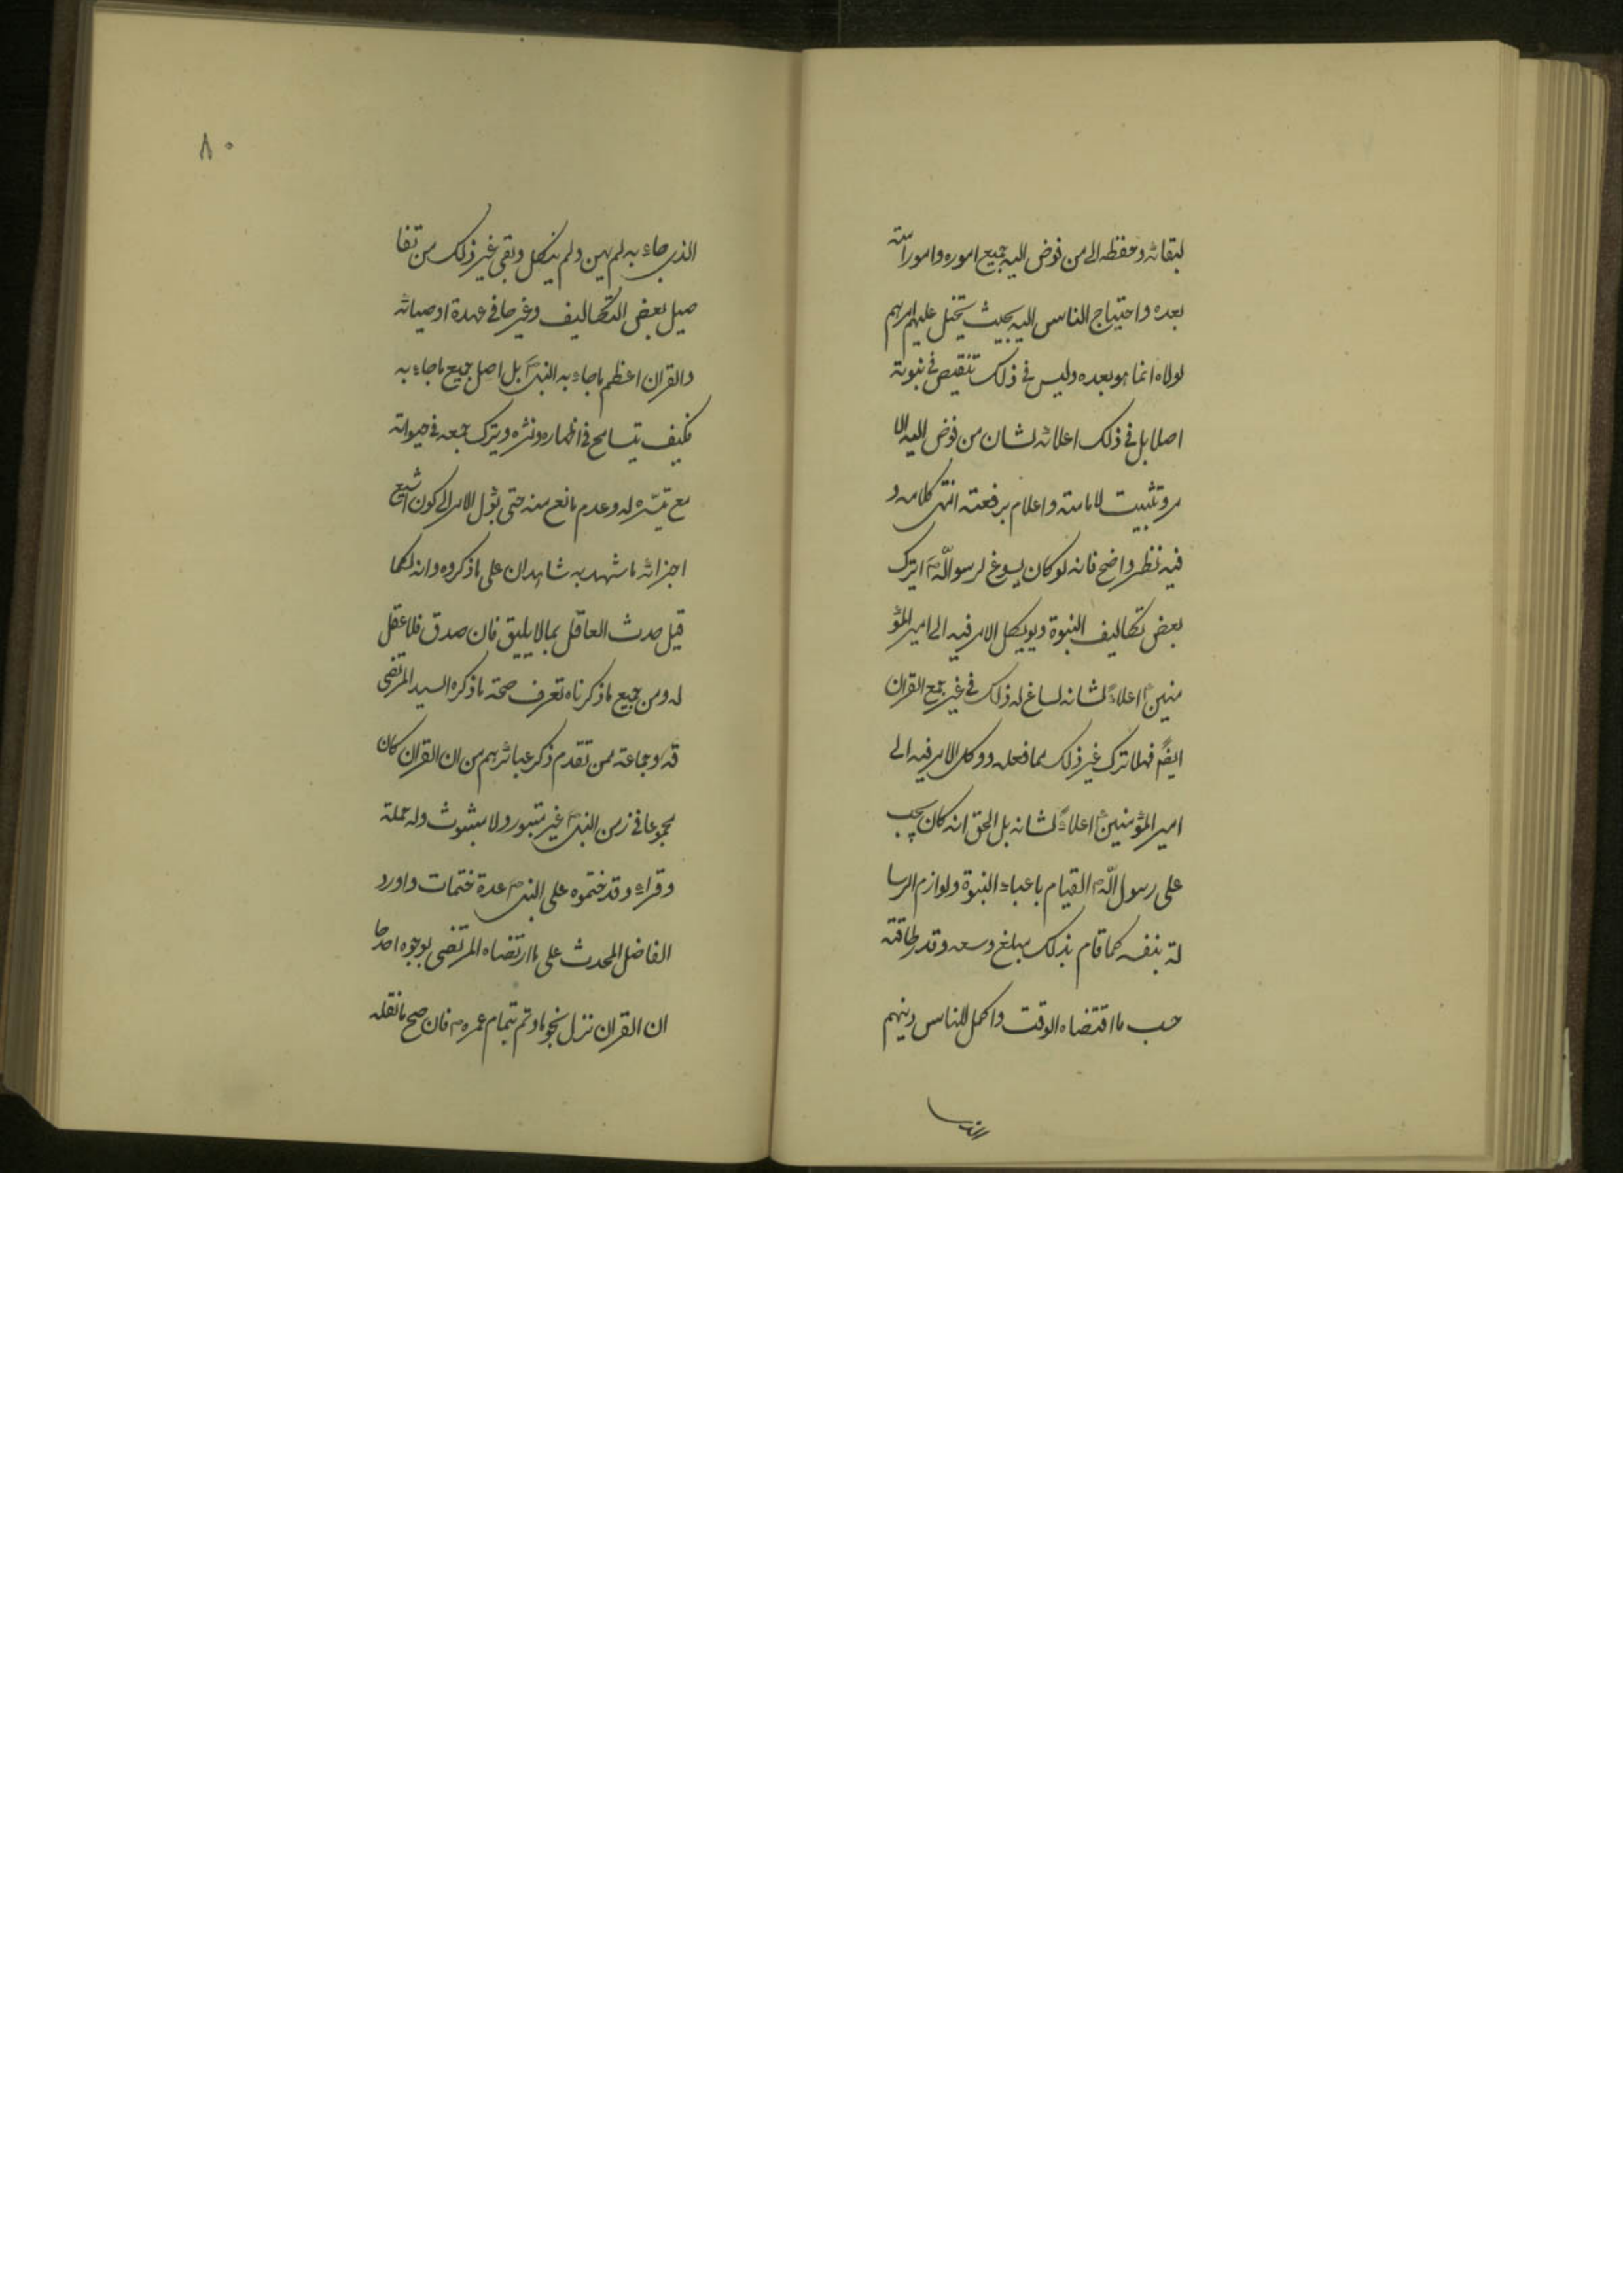 لبقائه وحفظه الى من فوض اليه جميع اموره وامور امته
بعده واحتياج الناس اليه بحيث يختل عليهم امرهم
لولاه انما هو بعده وليس في ذلك تنقيص في نبوته
اصلا بل في ذلك اعلائه لشان من فوض اليه الا
مر وتثبيت لامامته واعلام برفعته انتهى كلامه و
فيه نظر واضح فانه لو كان يسوغ لرسول اللّه ص ان يترك
بعض تكاليف النبوة ويوكل الامر فيه الى امير المؤ
منين ع اعلاءً لشانه لساغ له ذلك في غير جمع القران
ايضً فهلا ترك غير ذلك مما فعله ووكل الامر فيه الى
امير المؤمنين ع اعلاءً لشانه بل الحق انه كان يجب
على رسول اللّه ص القيام باعباء النبوة ولوازم الرسا
لة بنفسه كما قام بذلك مبلغ وسعه وقدر طاقته
حسب ما اقتضاه الوقت واكمل للناس دينهم
الذى
٨٠
الذي جاء به لم يهن ولم ينكل وبقي غير ذلك من تفا
صيل بعض التكاليف وغيرها في عهدة اوصيائه
والقران اعظم ما جاء به النبى ص بل اصل جميع ما جاء به
فكيف يتسامح في اظهاره ونشره ويترك جمعه في حيواته
مع تيسّره له وعدم مانع منه حتى يؤل الامر الى كون اشيع
اجزائه ما شهد به شاهدان على ما ذكروه وانه لكما
قيل حدث العاقل بما لا يليق فان صدق فلا عقل
له ومن جميع ما ذكرناه تعرف صحة ما ذكره السيد المرتضى
قه وجماعة ممن تقدم ذكر عبائرهم من ان القران كان
مجموعا في زمن النبى ص غير متبور ولا مبثوث وله حملة
وقراء وقد ختموه على النبى ص عدة ختمات واورد
الفاضل المحدث على ما ارتضاه المرتضى بوجوه احدها
ان القران نزل نجوما وتم بتمام عمره ص فان صح ما نقله